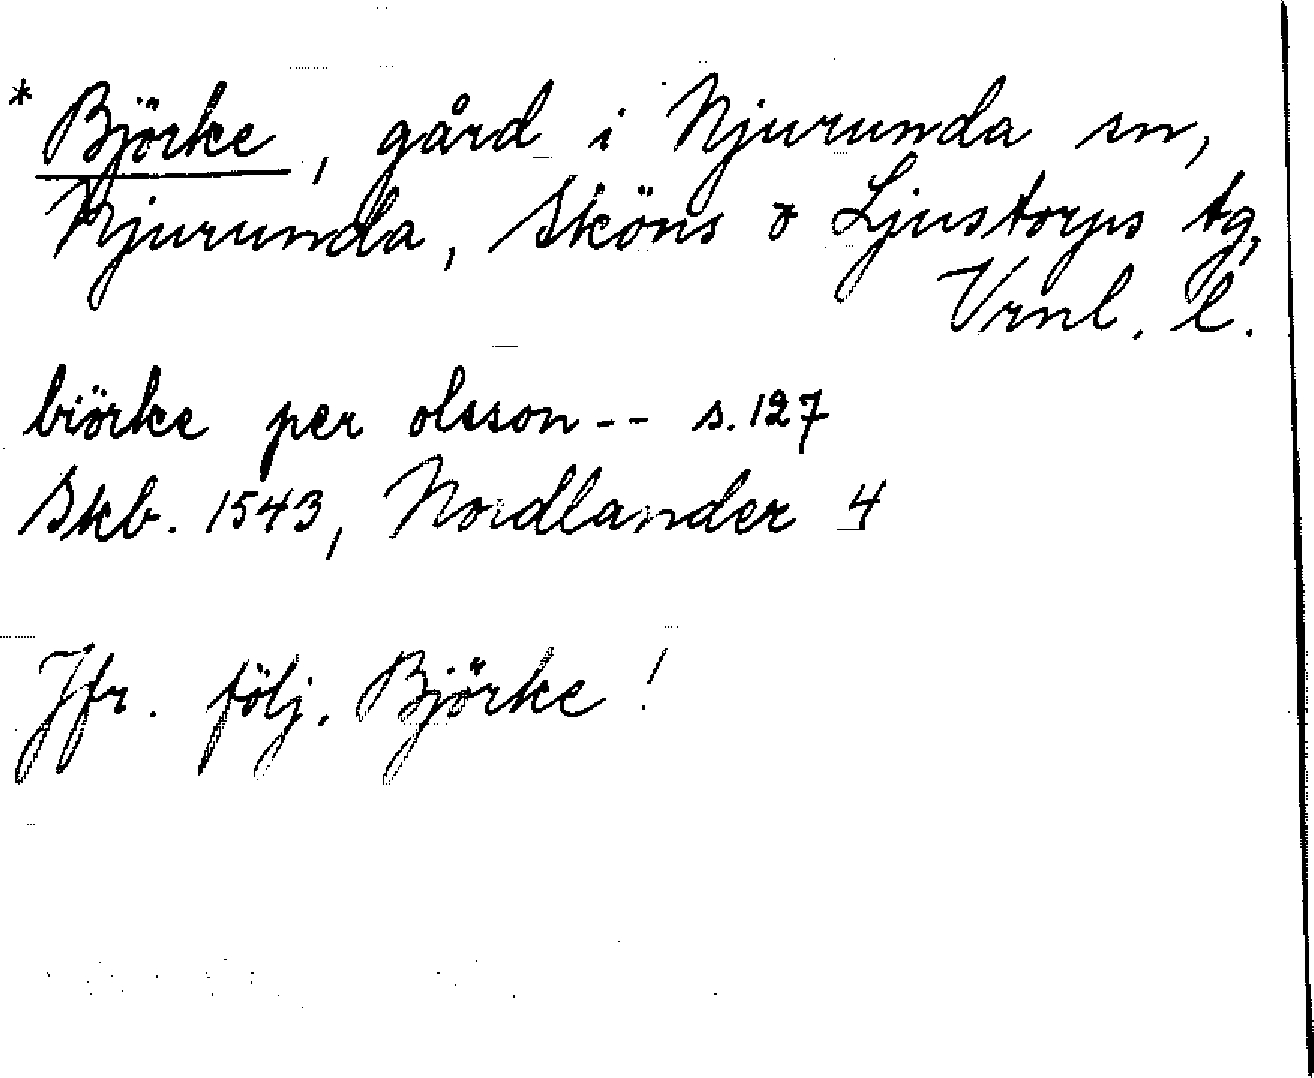 * Björke, gård i Njurunda sn,
Njurunda, Sköns o Ljustorps tg,
Vrnl. l.
biörke per olsson -- s. 127
Skb. 1543, Nordlander 4
Jfr. följ. Björke!